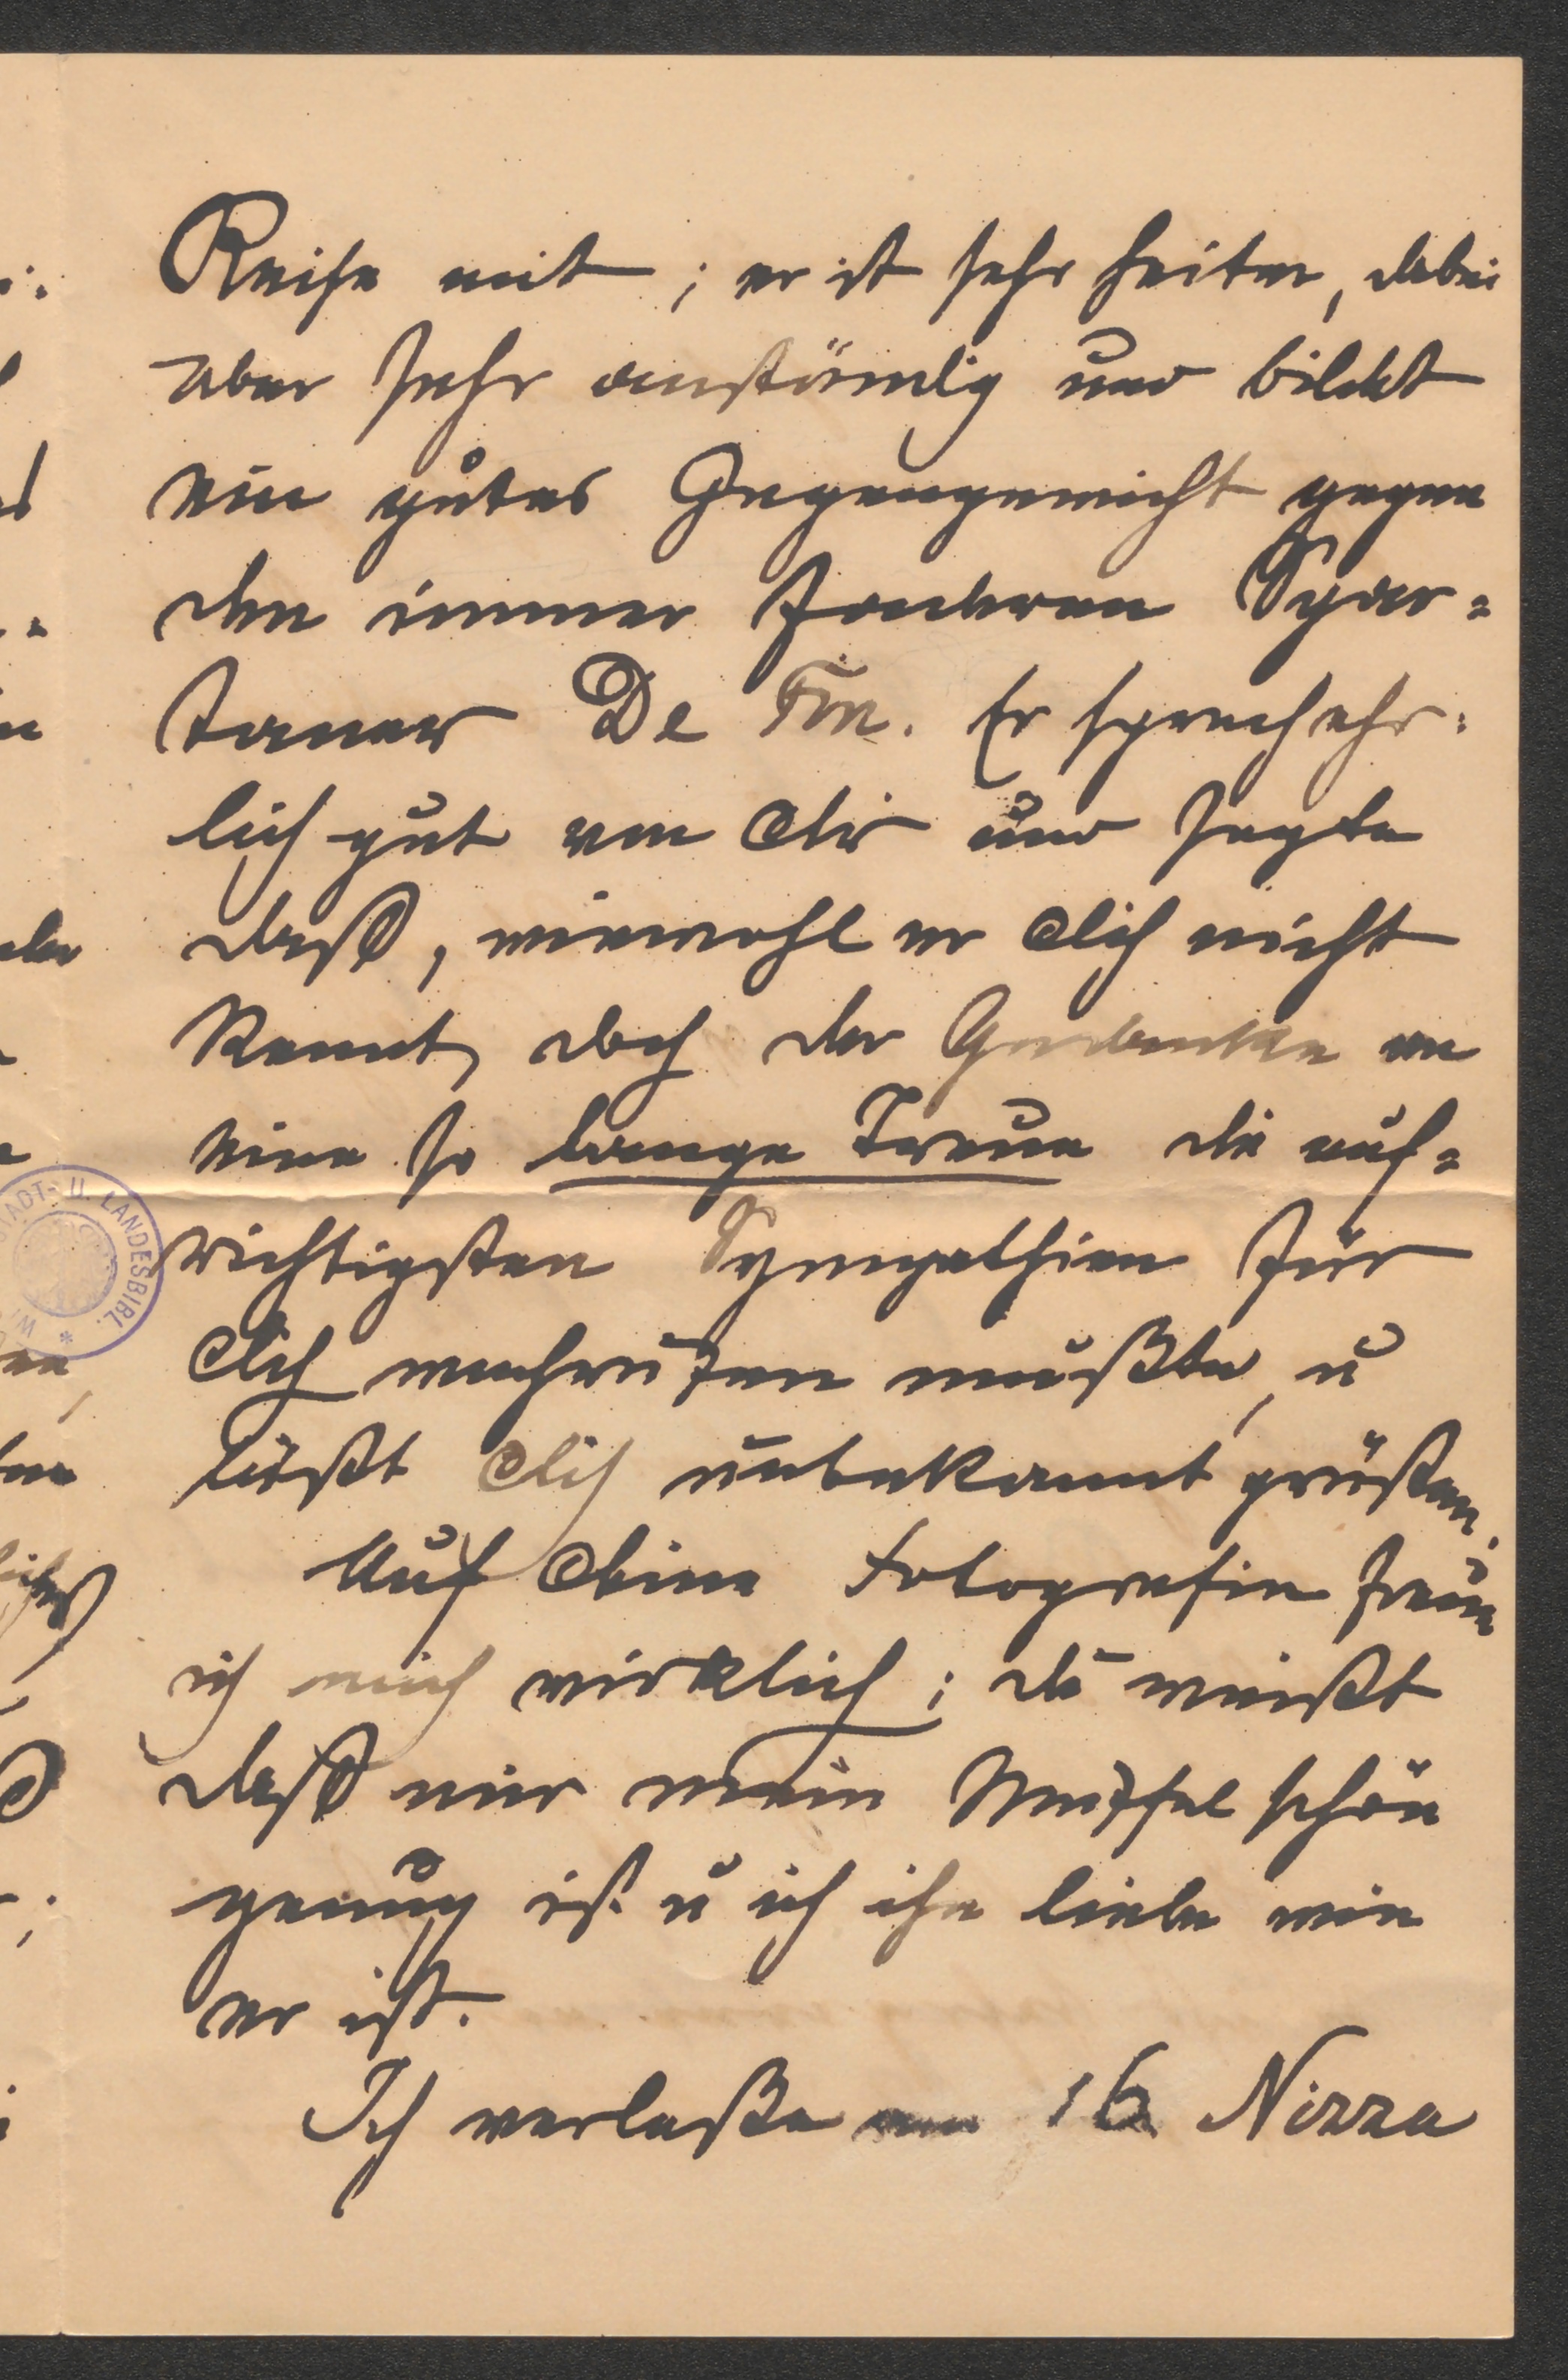 Reise mit; er ist sehr heiter, dabei
aber sehr anständig und bildet
ein gutes Gegengewicht gegen
den immer Spar=
taner De Fin. Er sprach ehr=
lich gut von Dir und sagte
daß, wiewohl er Dich nicht
kennt, doch der Gedanke an
eine so lange Treue die auf=
richtigsten Sympathien für
Dich wachrufen mußte, u
läßt Dich unbekannt grüßen.
Auf Deine Fotografie freue
ich mich wirklich; du weißt
daß mir mein schön
genug ist u ich ihn liebe wie
er ist.
Ich verlaße am 16 Nizza
STADT- U. LANDESBIBL.